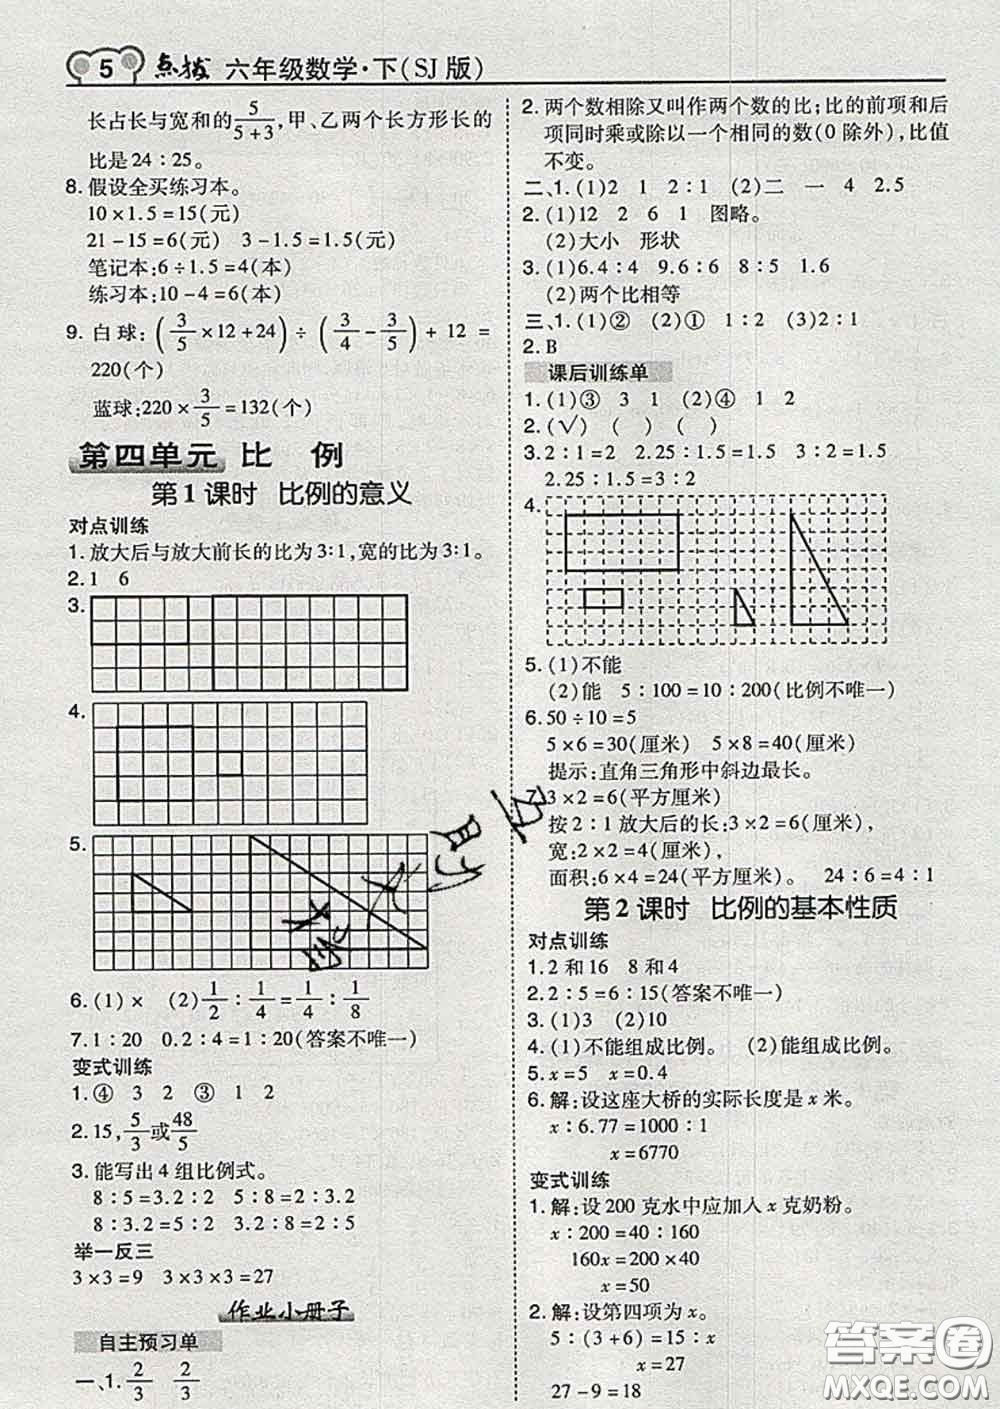 5 点拨 六年级数学·下(SJ版)
长占长与宽和的5/(5+3),甲、乙两个长方形长的
比是24:25。
8. 假设全买练习本。
10×1.5=15(元)
21-15=6(元) 3-1.5=1.5(元)
笔记本:6÷1.5=4(本)
练习本:10-4=6(本)
9. 白球:(3/5×12+24)÷(3/4-3/5)+12=
220(个)
蓝球:220×3/5=132(个)
第四单元 比 例
第1课时 比例的意义
对点训练
1. 放大后与放大前长的比为3:1,宽的比为3:1。
2. 1 6
3.
4.
5.
6. (1)× (2)1/2:1/4=1/4:1/8
7. 1:20 0.2:4=1:20(答案不唯一)
变式训练
1. ④ 3 2 ③ 1 2
2. 15,5/3或48/5
3. 能写出4组比例式。
8:5=3.2:2 5:8=2:3.2
8:3.2=5:2 3.2:8=2:5
举一反三
3×3=9 3×3×3=27
作业小册子
自主预习单
一、1. 2/3 2/3
2. 两个数相除又叫作两个数的比;比的前项和后
项同时乘或除以一个相同的数(0除外),比值
不变。
二、1. (1)2 1 2:1 (2)二 一 4 2.5
2. (1)12 2 6 1 图略。
(2)大小 形状
3. (1)6.4:4 9.6:6 8:5 1.6
(2)两个比相等
三、1. (1)② (2)① 1:2 (3)2:1
2. B
课后训练单
1. (1)③ 3 1 (2)④ 1 2
2. (√) ( ) ( ) ( )
3. 2:1=2 2.25:1.5=1.5 3:2=1.5
2.25:1.5=3:2
4.
5. (1)不能
(2)能 5:100=10:200(比例不唯一)
6. 50÷10=5
5×6=30(厘米) 5×8=40(厘米)
提示:直角三角形中斜边最长。
7. 3×2=6(平方厘米)
按2:1放大后的长:3×2=6(厘米),
宽:2×2=4(厘米),
面积:6×4=24(平方厘米)。 24:6=4:1
第2课时 比例的基本性质
对点训练
1. 2和16 8和4
2. 2:5=6:15(答案不唯一)
3. (1)3 (2)10
4. (1)不能组成比例。 (2)能组成比例。
5. x=5 x=0.4
6. 解:设这座大桥的实际长度是x米。
x:6.77=1000:1
x=6770
变式训练
1. 解:设200克水中应加入x克奶粉。
x:200=40:160
160x=200×40
x=50
2. 解:设第四项为x。
5:(3+6)=15:x
x=27
27-9=18
答案圈
MXQE.COM